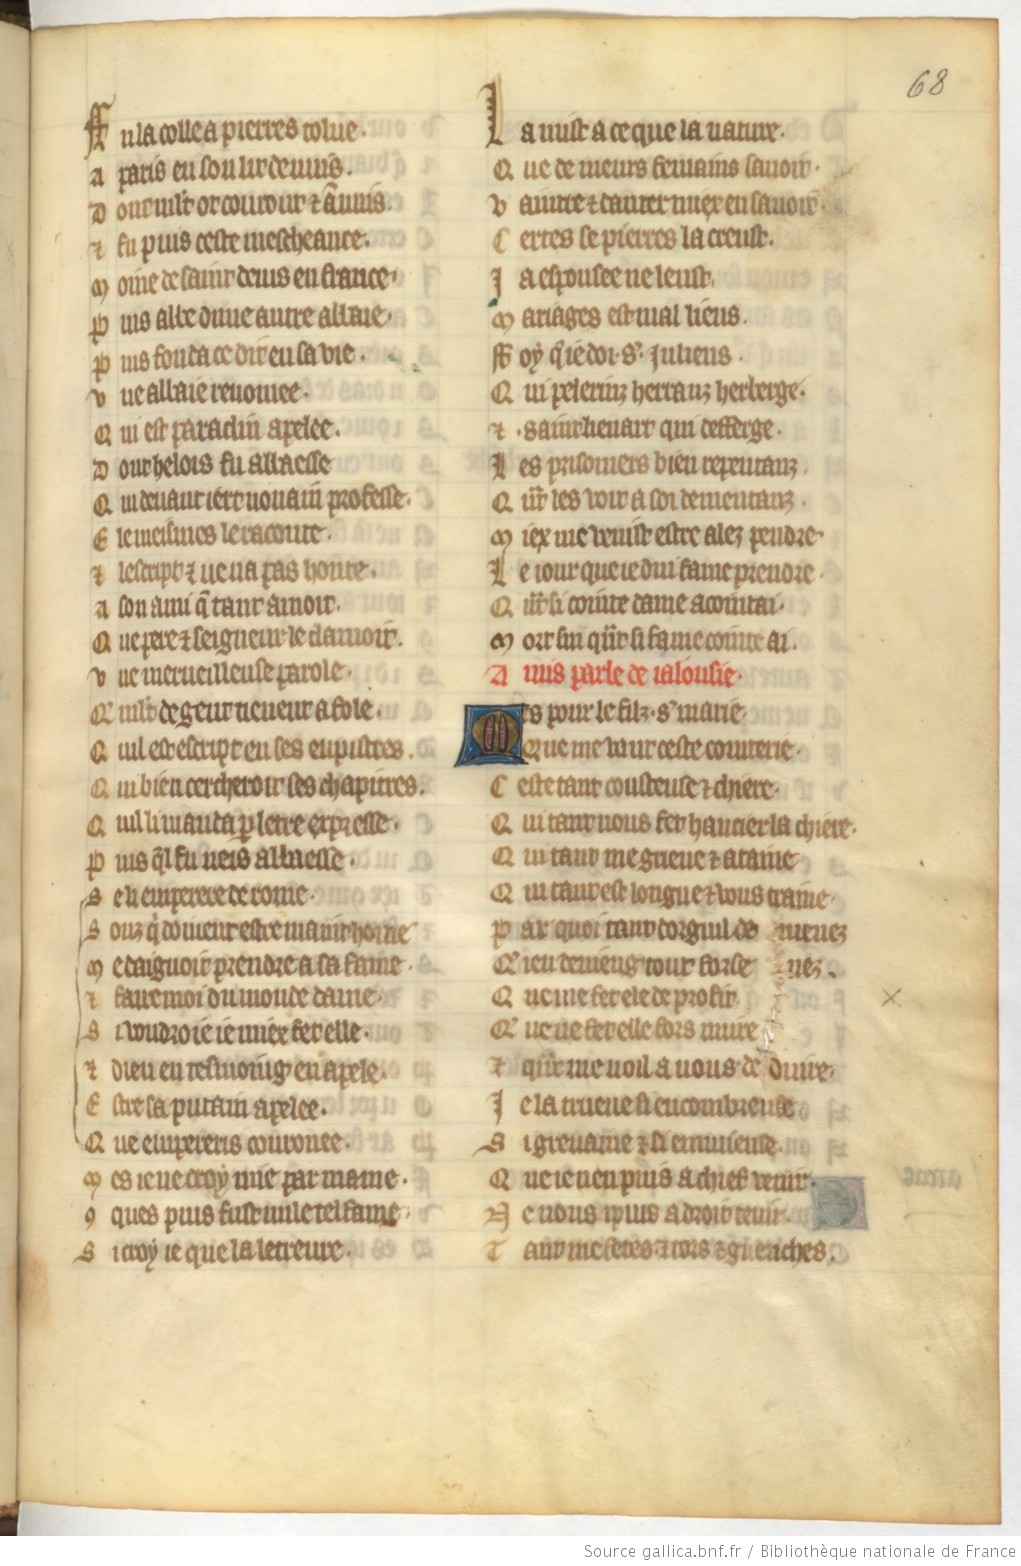 68
Fu la coille a pierres tolue.
A paris en son lit de nuis.
Dont mlt ot courrour ⁊ anuis.
⁊ fu puis ceste mescheance.
Moine de saint denis en france.
Puis abbe dune autre abbaie.
Puis fonda ce dit en sa vie.
Vne abbaie renomee.
Qui est paraclin apelee.
Dont helois fu abbaesse
Qui deuant iert nonain professe.
Ele meismes le raconte.
⁊ lescript ⁊ nen a pas honte.
A son ami q̃ tant amoit.
Que pere ⁊ seigneur le clamoit.
Vne merueilleuse parole.
Qui est escript en ses epistres.
Qui bien cercheroit ses chapitres.
Quil li manda ꝑ letre expresse.
Puis ql fu neis abbaesse.
Se li emperere de rome.
Souz q̃ doiuent estre maint home
Me daignoit prendre a sa fame.
⁊ faire moi du monde dame.
Si voudroie ie miex fet elle.
⁊ dieu en tesmoing en apele.
Estre sa putain apelee.
Que empereris couronee.
Mes ie ne croy mie par mame.
9ques puis fust nule tel fame.
Si croy ie que la letreure.
La mist a ce que la nature.
Que de meurs femains sauoir.
Vaintre ⁊ danter miex en sauoir.
Certes se pierres la creust.
Ja espousee ne leust.
Mariages est mal liens.
Foy q̃ ie doi .s. Juliens.
Qui pelerinz herranz herberge.
⁊ .saint lienart qui defferge.
Les prisoniers bien repentanz.
Qñt les voit a soi dementanz.
Miex me venist estre alez pendre
Le iour que ie dui fame prendre.
Qñt si cointe dame acointai.
Mort sui qñt si fame cointe ai.
Amis parle de ialousie.
Mes pour le filz .s. marie.
Que me vaut ceste cointerie.
Ceste tant cousteuse ⁊ chiere.
Qui tant vous fet haucier la chiere.
Qui tant me grieue ⁊ ataine
Qui tant est longue ⁊ vous traine.
Par quoi tant dorguil de menez
Que me fet ele de profit.
⁊ qñt me voil a vous deduire.
Je la trueue si encombreuse
Si greuaine ⁊ si ennuieuse.
Que ie nen puis a chief venir.
Ne vous i puis a droit tenir.
Tant me fetes ⁊ tors ⁊ guenches.
Source gallica.bnf.fr / Bibliothèque nationale de France